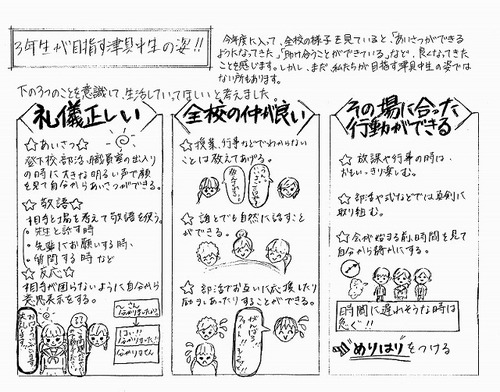 3年生が目指す津具中生の姿!!
今年度に入って、全校の様子を見ていると、「あいさつができる
ようになってきた」「助け合うことができている」など、良くなってきた
ことを感じます。しかし、まだ私たちが目指す津具中生の姿では
ない所もあります。
下の3つのことを意識して、生活していってほしいと考えました。
礼儀正しい
☆あいさつ☆
登下校、部活、職員室の出入り
の時に大きな明るい声で顔
を見て自分からあいさつができる。
☆敬語☆
相手と場を考えて敬語を使う。
・先生と話す時
・先輩にお願いする時、
・質問する時 など
☆反応☆
相手が困らないように自分から
意思表示をする。
おはようございます
〜さん
はい!!
分かりました!
分かりません
全校の仲が良い
☆授業、行事などでわからない
ことは教えてあげる。
☆誰とでも自然に話すこと
ができる。
☆部活でお互いに応援したり
励まし合ったりすることができる。
がんばろう!
その場に合った
行動ができる
☆放課や行事の時は、
おもいっきり楽しむ。
☆部活や式などでは真剣に
取り組む。
☆会が始まる前、時間を見て
自分から静かにする。
時間に遅れそうな時は
急ぐ!!
めりはりをつける